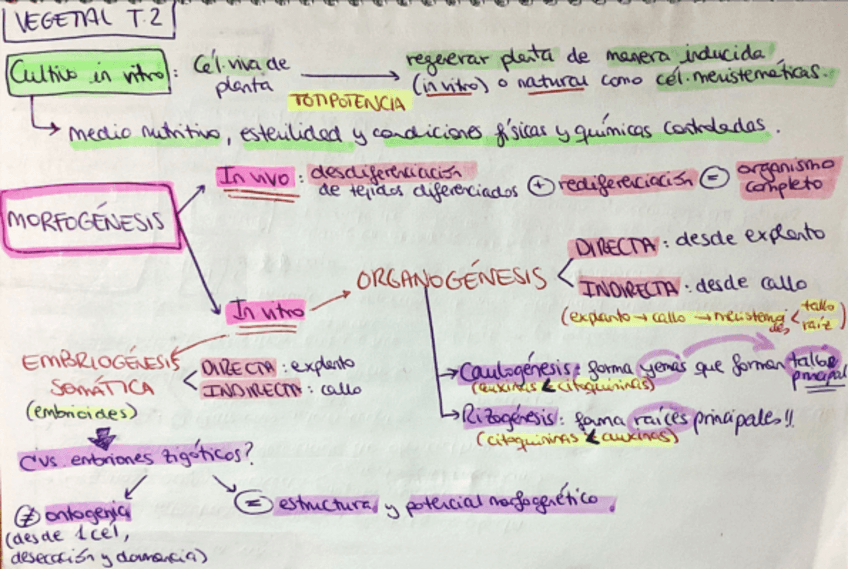 VEGETAL T.2
Cultivo in vitro: Cél. viva de planta → regenerar planta de manera inducida
(in vitro) o natural como cél. meristemáticas.
TOTIPOTENCIA
↳ medio nutritivo, esterilidad y condiciones físicas y químicas controladas.
MORFOGÉNESIS
In vivo: desdiferenciación
de tejidos diferenciados + rediferenciación = organismo completo
In vitro
ORGANOGÉNESIS
DIRECTA: desde explanto
INDIRECTA: desde callo
(explanto → callo → meristemas < tallo
raíz)
EMBRIOGÉNESIS
SOMÁTICA
(embrioides)
DIRECTA: explanto
INDIRECTA: callo
Caulogénesis: forma yemas que forman tallo principal
(auxinas < citoquininas)
Rizogénesis: forma raíces principales!!
(citoquininas < auxinas)
¿vs. embriones zigóticos?
≠ ontogenia
(desde 1 cél,
desecación y dormancia)
= estructura y potencial morfogenético.